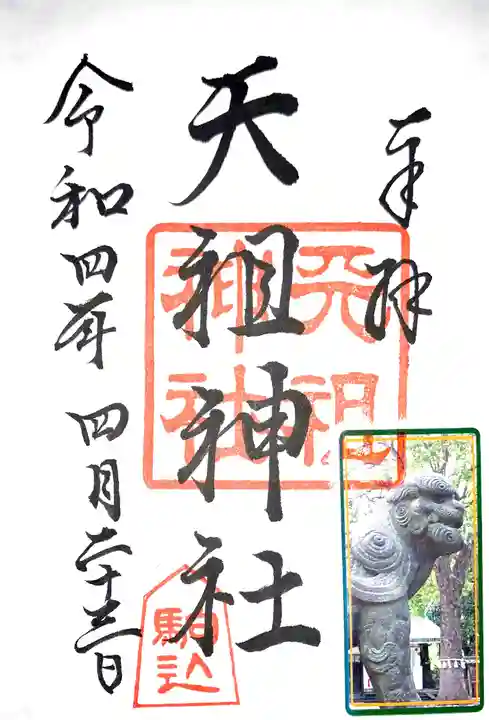 奉拝
天祖神社
令和四年 四月二十三日
天祖神社
駒込